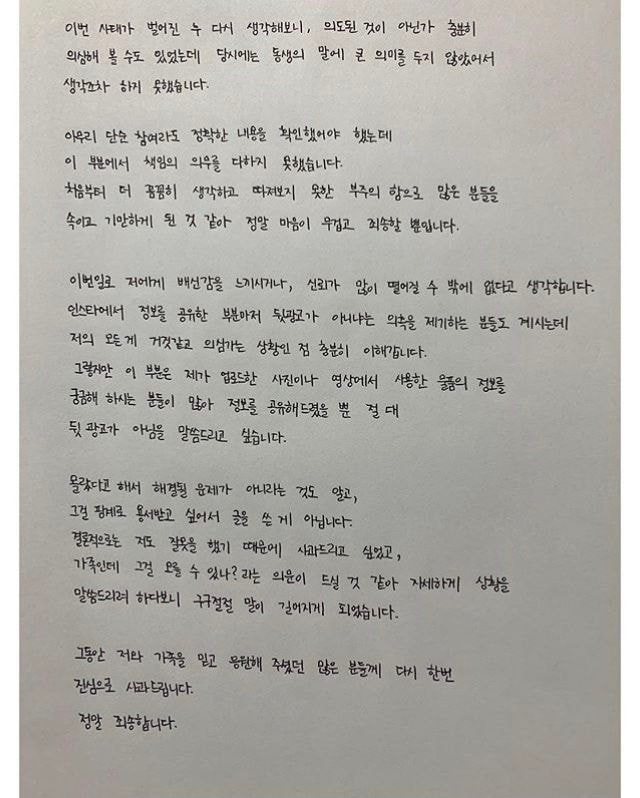 이번 사태가 벌어진 후 다시 생각해보니, 의도된 것이 아닌가 충분히
의심해 볼 수도 있었는데 당시에는 동생의 말에 큰 의미를 두지 않았어서
생각조차 하지 못했습니다.
아무리 단순 참여라도 정확한 내용을 확인했어야 했는데
이 부분에서 책임의 의무를 다하지 못했습니다.
처음부터 더 꼼꼼히 생각하고 따져보지 못한 부주의 함으로 많은 분들을
속이고 기만하게 된 것 같아 정말 마음이 무겁고 죄송할 뿐입니다.
이번일로 저에게 배신감을 느끼시거나, 신뢰가 많이 떨어질 수 밖에 없다고 생각합니다.
인스타에서 정보를 공유한 부분마저 뒷광고가 아니냐는 의혹을 제기하는 분들도 계시는데
저의 모든게 거짓같고 의심가는 상황인 점 충분히 이해갑니다.
그렇지만 이 부분은 제가 업로드한 사진이나 영상에서 사용한 물품의 정보를
궁금해 하시는 분들이 많아 정보를 공유해드렸을 뿐 절대
뒷 광고가 아님을 말씀드리고 싶습니다.
몰랐다고 해서 해결될 문제가 아니라는 것도 알고,
그걸 핑계로 용서받고 싶어서 글을 쓴 게 아닙니다.
결론적으로는 저도 잘못을 했기 때문에 사과드리고 싶었고,
가족인데 그걸 모를 수 있나? 라는 의문이 드실 것 같아 자세하게 상황을
말씀드리려 하다보니 구구절절 말이 길어지게 되었습니다.
그동안 저와 가족을 믿고 응원해 주셨던 많은 분들께 다시 한번
진심으로 사과드립니다.
정말 죄송합니다.